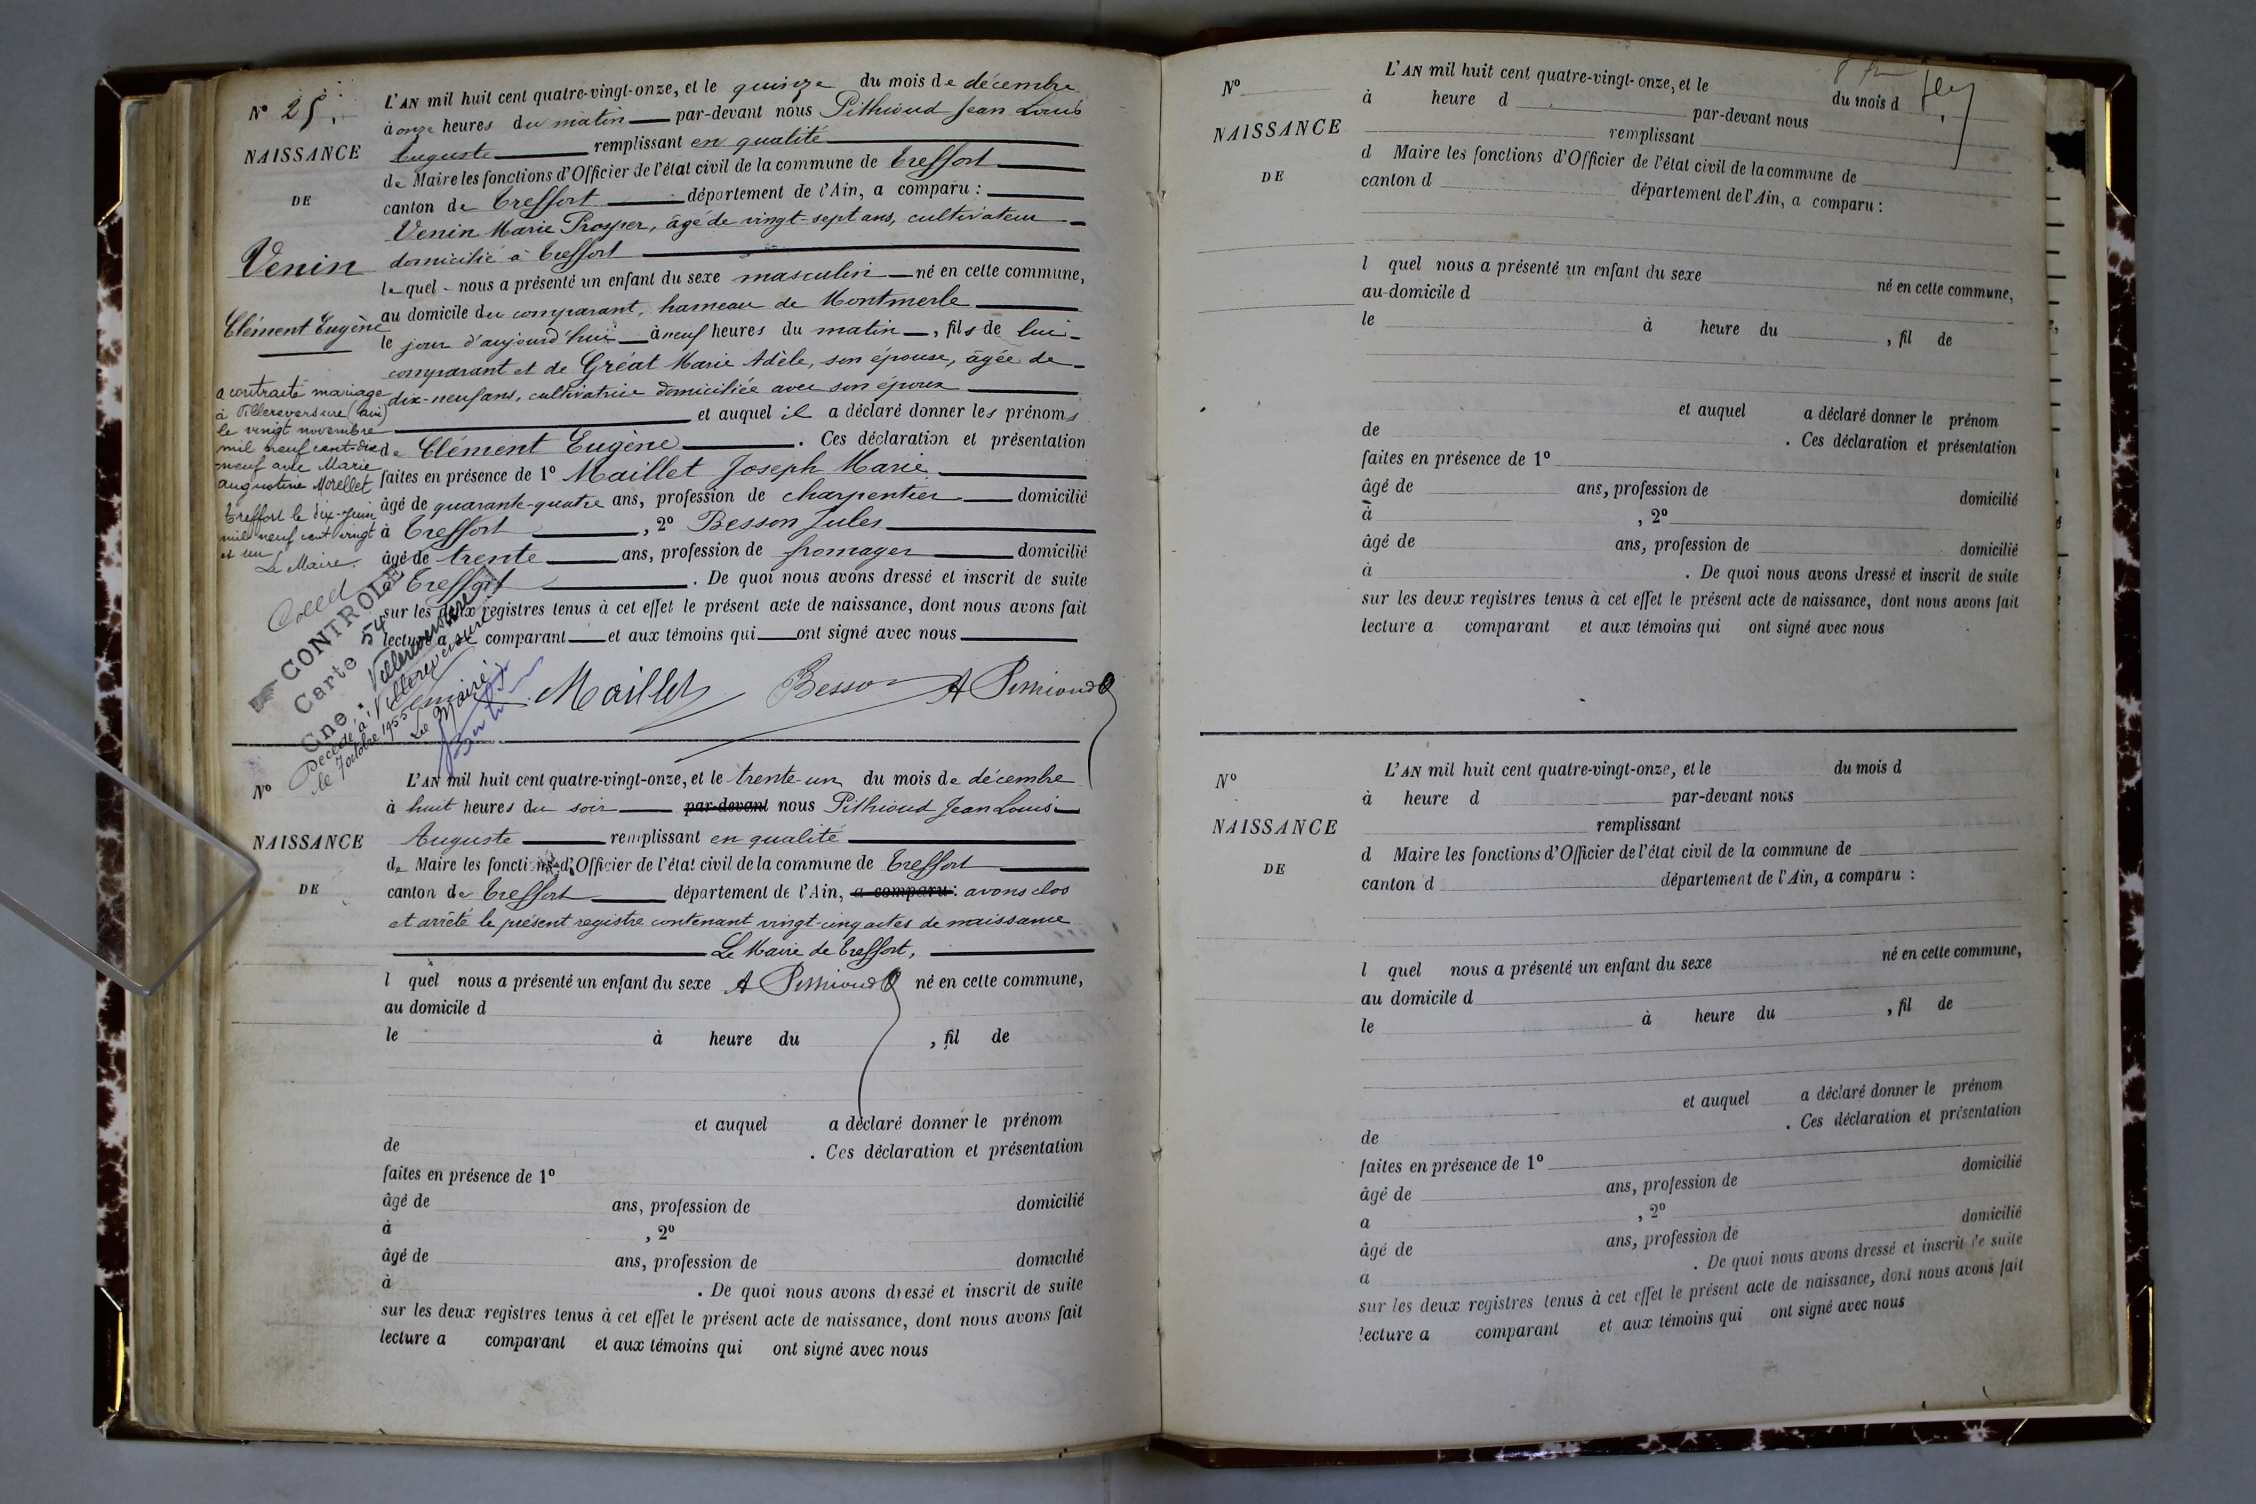 N° 25
NAISSANCE
DE
Venin
Clément Eugène
a contracté mariage
à Villereversure (ain)
le vingt novembre
mil neuf cent dix
neuf avec Marie
augustine Morellet
Treffort le dix-juin
mil neuf cent vingt
et un
Le Maire.
CONTROLE
Carte 54
Cne. Villereversure
Décédé à Villereversure
le 7 octobre 1955
Le Maire
L'AN mil huit cent quatre-vingt-onze, et le quinze du mois de décembre
à onze heures du matin par-devant nous Pithioud Jean Louis
Auguste remplissant en qualité
de Maire les fonctions d'Officier de l'état civil de la commune de Treffort
canton de Treffort département de l'Ain, a comparu :
Venin Marie Prosper, âgé de vingt-sept ans, cultivateur
domicilié à Treffort
lequel nous a présenté un enfant du sexe masculin né en cette commune,
au domicile du comparant, hameau de Montmerle
le jour d'aujourd'hui à neuf heures du matin , fils de lui-
comparant et de Gréat Marie Adèle, son épouse, âgée de
dix-neuf ans, cultivatrice domiciliée avec son époux
et auquel il a déclaré donner les prénoms
de Clément Eugène . Ces déclaration et présentation
faites en présence de 1° Maillet Joseph Marie
âgé de quarante-quatre ans, profession de charpentier domicilié
à Treffort , 2° Besson Jules
âgé de trente ans, profession de fromager domicilié
à Treffort . De quoi nous avons dressé et inscrit de suite
sur les deux registres tenus à cet effet le présent acte de naissance, dont nous avons fait
lecture au comparant et aux témoins qui ont signé avec nous
Maillet Besson A Pithioud
N°
NAISSANCE
DE
L'AN mil huit cent quatre-vingt-onze, et le trente-un du mois de décembre
à huit heures du soir par-devant nous Pithioud Jean Louis
Auguste remplissant en qualité
de Maire les fonctions d'Officier de l'état civil de la commune de Treffort
canton de Treffort département de l'Ain, a comparu : avons clos
et arrêté le présent registre contenant vingt-cinq actes de naissance
Le Maire de Treffort,
l quel nous a présenté un enfant du sexe A Pithioud né en cette commune,
au domicile d
le à heure du , fil de
et auquel a déclaré donner le prénom
de . Ces déclaration et présentation
faites en présence de 1°
âgé de ans, profession de domicilié
à , 2°
âgé de ans, profession de domicilié
à . De quoi nous avons dressé et inscrit de suite
sur les deux registres tenus à cet effet le présent acte de naissance, dont nous avons fait
lecture a comparant et aux témoins qui ont signé avec nous
N°
NAISSANCE
DE
L'AN mil huit cent quatre-vingt-onze, et le du mois d
à heure d par-devant nous
remplissant
d Maire les fonctions d'Officier de l'état civil de la commune de
canton d département de l'Ain, a comparu :
l quel nous a présenté un enfant du sexe né en cette commune,
au domicile d
le à heure du , fil de
et auquel a déclaré donner le prénom
de . Ces déclaration et présentation
faites en présence de 1°
âgé de ans, profession de domicilié
à , 2°
âgé de ans, profession de domicilié
à . De quoi nous avons dressé et inscrit de suite
sur les deux registres tenus à cet effet le présent acte de naissance, dont nous avons fait
lecture a comparant et aux témoins qui ont signé avec nous
N°
NAISSANCE
DE
L'AN mil huit cent quatre-vingt-onze, et le du mois d
à heure d par-devant nous
remplissant
d Maire les fonctions d'Officier de l'état civil de la commune de
canton d département de l'Ain, a comparu :
l quel nous a présenté un enfant du sexe né en cette commune,
au domicile d
le à heure du , fil de
et auquel a déclaré donner le prénom
de . Ces déclaration et présentation
faites en présence de 1°
âgé de ans, profession de domicilié
a , 2°
âgé de ans, profession de domicilié
a . De quoi nous avons dressé et inscrit de suite
sur les deux registres tenus à cet effet le présent acte de naissance, dont nous avons fait
lecture a comparant et aux témoins qui ont signé avec nous